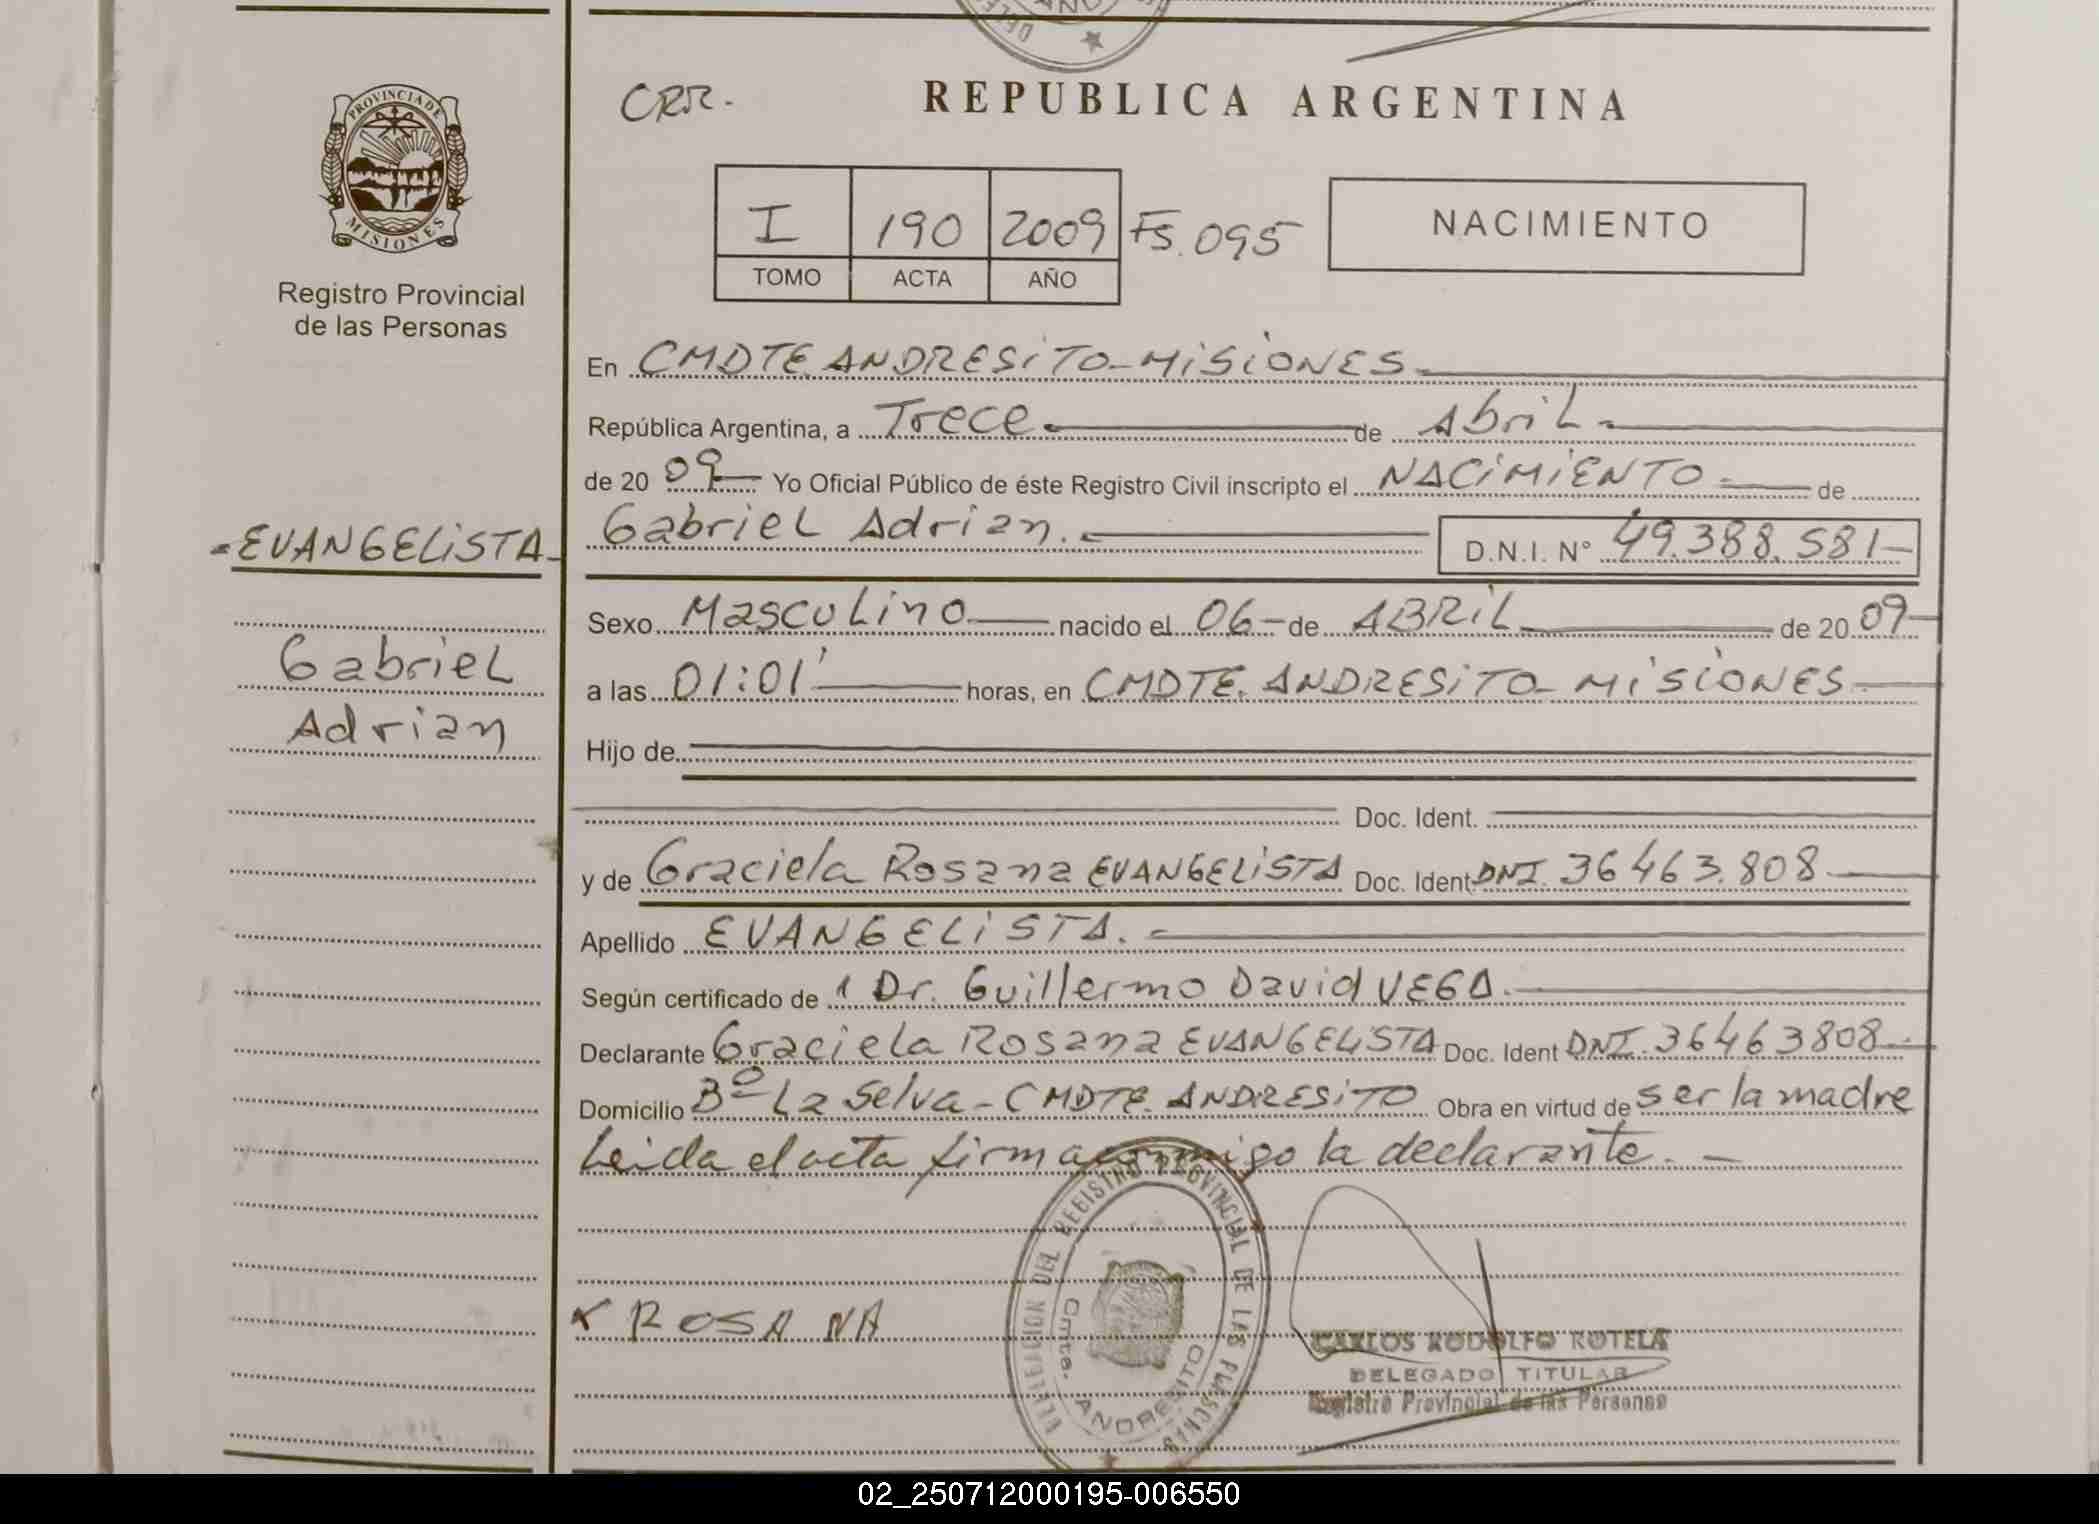 CRR.
REPUBLICA ARGENTINA
PROVINCIA DE
MISIONES
Registro Provincial
de las Personas
I 190 2009 Fs. 095
TOMO ACTA AÑO
NACIMIENTO
En CMDTE ANDRESiTO-MiSiONES
República Argentina, a Trece de Abril
de 20 09 Yo Oficial Público de éste Registro Civil inscripto el NACiMiENTO de
EVANGELiSTA
Gabriel Adrian. D.N.I. N° 49.388.581
Gabriel
Adrian
Sexo Masculino nacido el 06 de ABRiL de 20 09
a las 01:01' horas, en CMDTE. ANDRESiTO-MiSiONES
Hijo de
Doc. Ident.
y de Graciela Rosana EVANGELiSTA Doc. Ident DNI. 36463.808
Apellido EVANGELiSTA.
Según certificado de 1 Dr. Guillermo David VEGA.
Declarante Graciela Rosana EVANGELiSTA Doc. Ident DNI. 36463808
Domicilio Bº La Selva-CMDTE. ANDRESiTO Obra en virtud de ser la madre
Leida el acta firma conmigo la declarante.
ROSANA
DELEGACION DEL REGISTRO PROVINCIAL DE LAS PERSONAS
Cmte. ANDRESITO
CARLOS RODOLFO ROTELA
DELEGADO TITULAR
Registro Provincial de las Personas
02_250712000195-006550